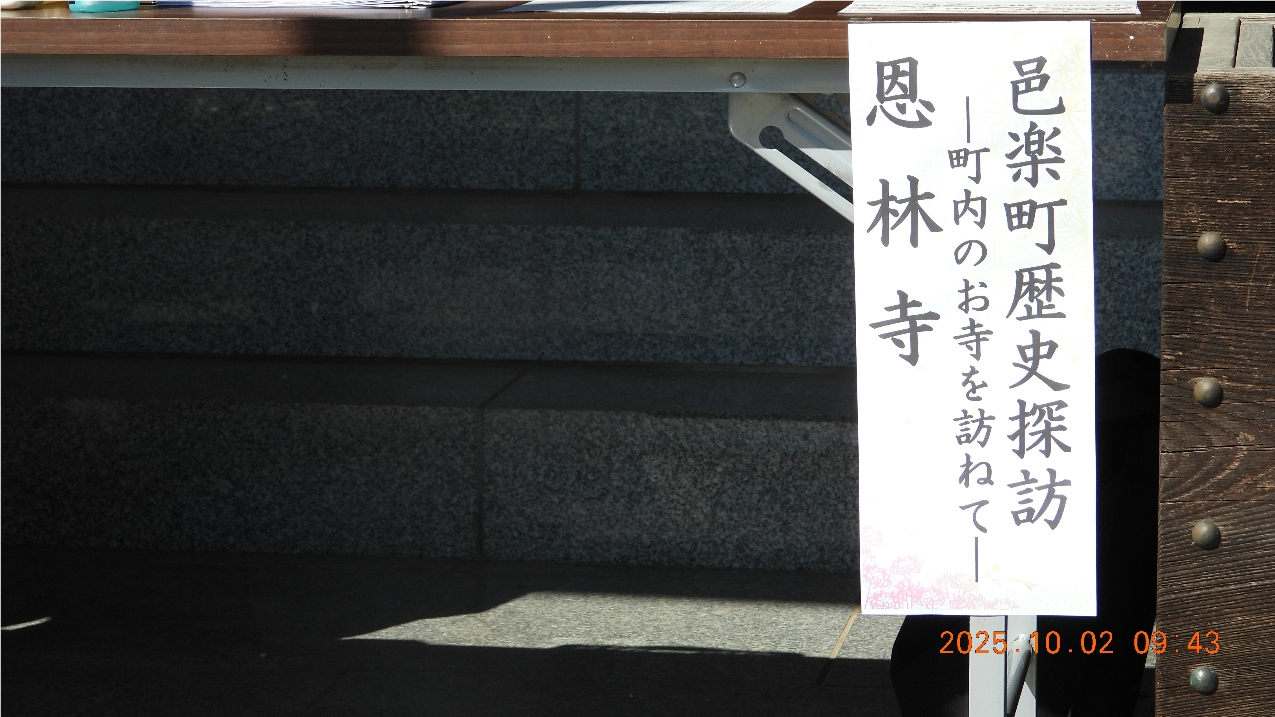 邑楽町歴史探訪
―町内のお寺を訪ねて―
恩林寺
2025.10.02 09:43